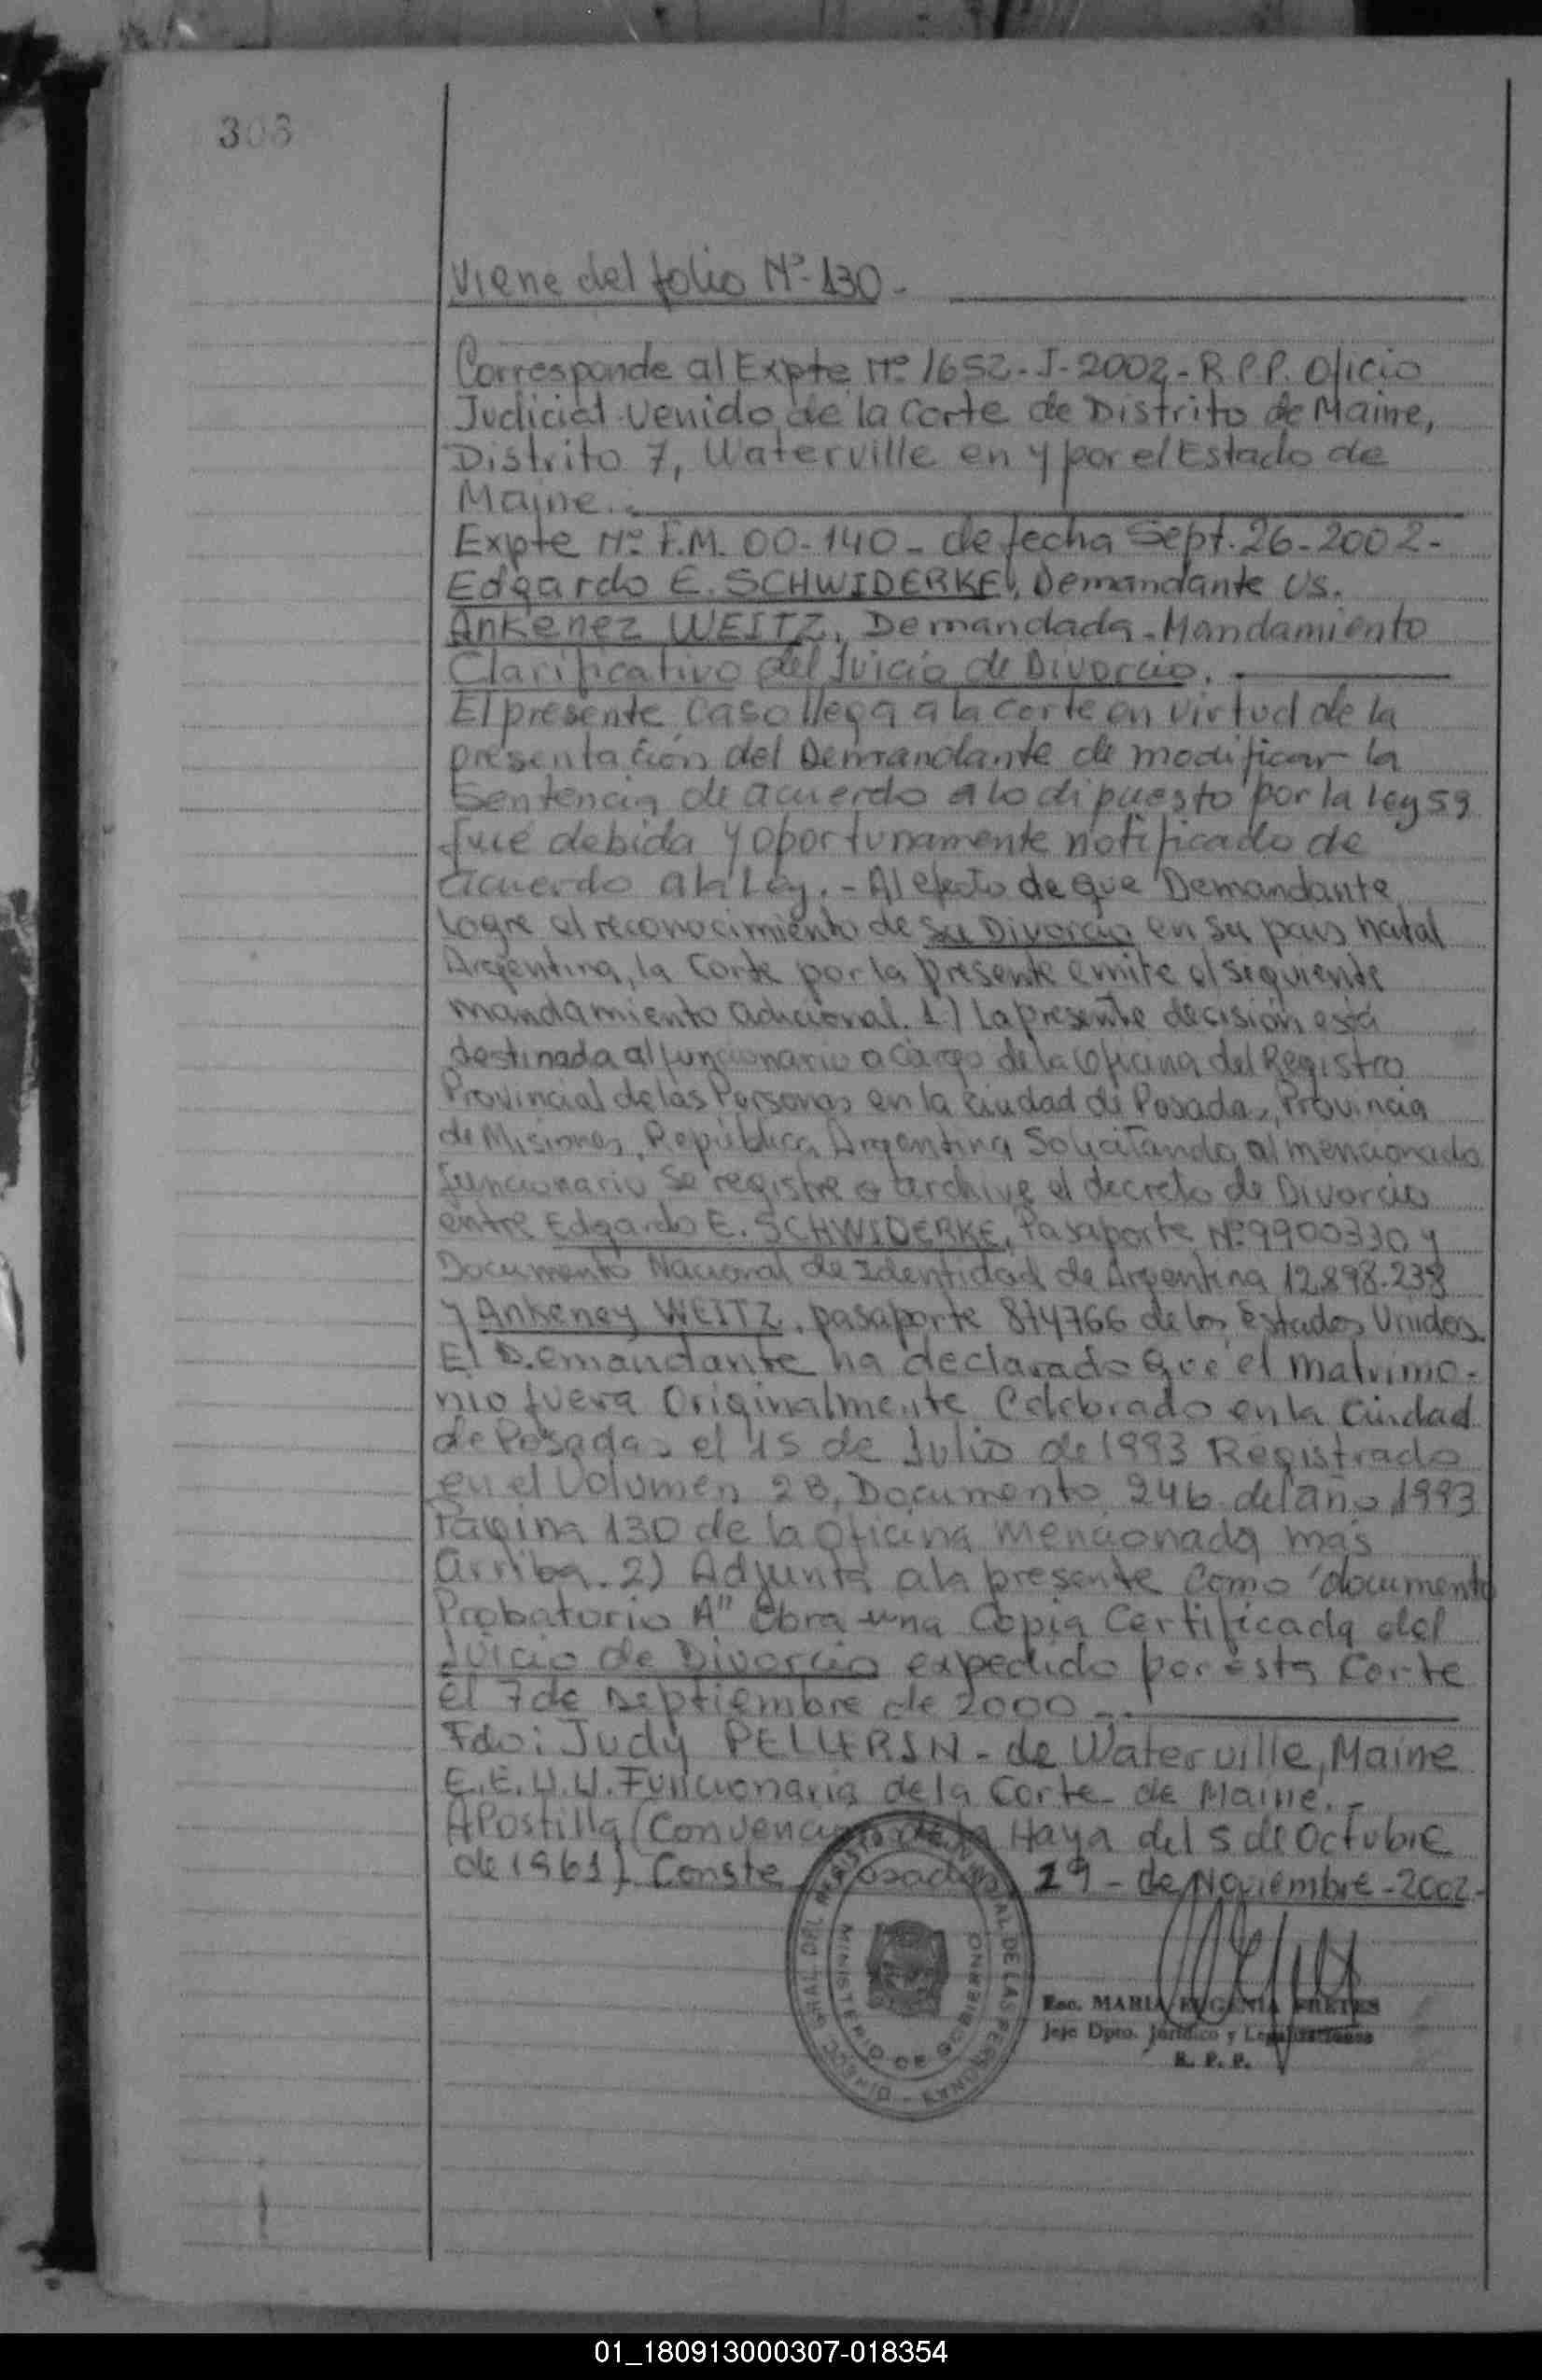 306
Viene del folio Nº-130-
Corresponde al Expte Nº 1652-J-2002-R.P.P. Oficio
Judicial Venido de la Corte de Distrito de Maine,
Distrito 7, Waterville en y por el Estado de
Maine.-
Expte Nº F.M. 00-140- de fecha Sept. 26-2002-
Edgardo E. SCHWIDERKE, Demandante Us.
Ankenez WEITZ, Demandada-Mandamiento
Clarificativo del Juicio de Divorcio.
El presente Caso llega a la corte en virtud de la
presentación del Demandante de modificar la
Sentencia de acuerdo a lo dipuesto por la Ley 59
fué debida y oportunamente notificado de
acuerdo a la Ley.- Al efecto de que Demandante
logre el reconocimiento de su Divorcio en su pais natal
Argentina, la Corte por la presente emite el siguiente
mandamiento adicional. 1) La presente decisión está
destinada al funcionario a cargo de la Oficina del Registro
Provincial de las Personas en la ciudad de Posadas, Provincia
de Misiones, República Argentina Solicitando al mencionado
funcionario se registre o archive el decreto de Divorcio
entre Edgardo E. SCHWIDERKE, Pasaporte Nº 9900330 y
Documento Nacional de Identidad de Argentina 12.898.238
y Ankeney WEITZ, pasaporte 874766 de los Estados Unidos.
El Demandante ha declarado que el matrimo-
nio fuera Originalmente Celebrado en la Ciudad
de Posadas el 15 de Julio de 1993 Registrado
en el Volumen 2B, Documento 246 del año 1993
Pagina 130 de la Oficina mencionada más
arriba. 2) Adjunta a la presente como "documento
Probatorio A" Obra una Copia Certificada del
Juicio de Divorcio expedido por esta Corte
el 7 de septiembre de 2000-.
Fdo: Judy PELLERIN- de Waterville, Maine
E.E.U.U. Funcionaria de la Corte de Maine.-
APostilla (Convención de la Haya del 5 de Octubre
de 1961). Conste Posadas 29-de Noviembre-2002-
DIRECC. GRAL DEL REGISTRO PROVINCIAL DE LAS PERSONAS
MINISTERIO DE GOBIERNO
Esc. MARIA EUGENIA FRETES
Jefe Dpto. Jurídico y Legalizaciones
R. P. P.
01_180913000307-018354